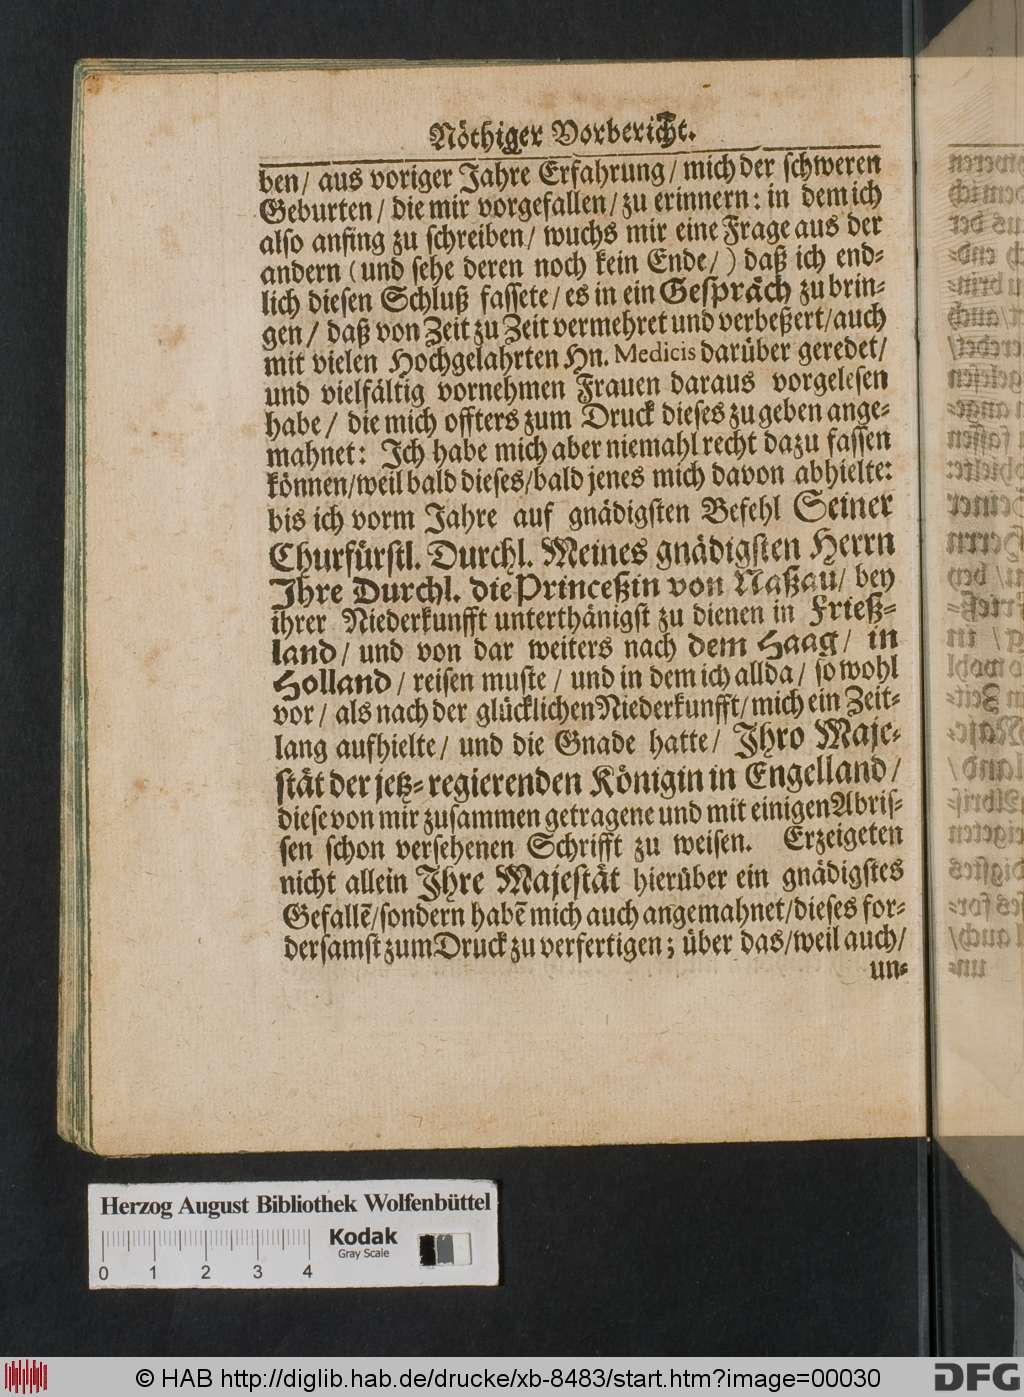 Nöthiger Vorbericht.
ben/ aus voriger Jahre Erfahrung/ mich der schweren
Geburten/ die mir vorgefallen/ zu erinnern: in dem ich
also anfing zu schreiben/ wuchs mir eine Frage aus der
andern (und sehe deren noch kein Ende/) daß ich end-
lich diesen Schluß fassete/ es in ein Gespräch zu brin-
gen/ daß von Zeit zu Zeit vermehret und verbeßert/auch
mit vielen Hochgelahrten Hn. Medicis darüber geredet/
und vielfältig vornehmen Frauen daraus vorgelesen
habe/ die mich offters zum Druck dieses zu geben ange-
mahnet: Ich habe mich aber niemahl recht dazu fassen
können/weil bald dieses/bald jenes mich davon abhielte:
bis ich vorm Jahre auf gnädigsten Befehl Seiner
Churfürstl. Durchl. Meines gnädigsten Herrn
Ihre Durchl. die Princeßin von Naßau/ bey
ihrer Niederkunfft unterthänigst zu dienen in Frieß-
land/ und von dar weiters nach dem Haag/ in
Holland/ reisen muste/ und in dem ich allda/ so wohl
vor/ als nach der glücklichen Niederkunfft/ mich ein Zeit-
lang aufhielte/ und die Gnade hatte/ Ihro Maje-
stät der jetz-regierenden Königin in Engelland/
diese von mir zusammen getragene und mit einigen Abris-
sen schon versehenen Schrifft zu weisen. Erzeigeten
nicht allein Ihre Majestät hierüber ein gnädigstes
Gefallẽ/sondern habẽ mich auch angemahnet/dieses for-
dersamst zum Druck zu verfertigen; über das/weil auch/
un-
Herzog August Bibliothek Wolfenbüttel
Kodak
Gray Scale
0 1 2 3 4
© HAB http://diglib.hab.de/drucke/xb-8483/start.htm?image=00030
DFG